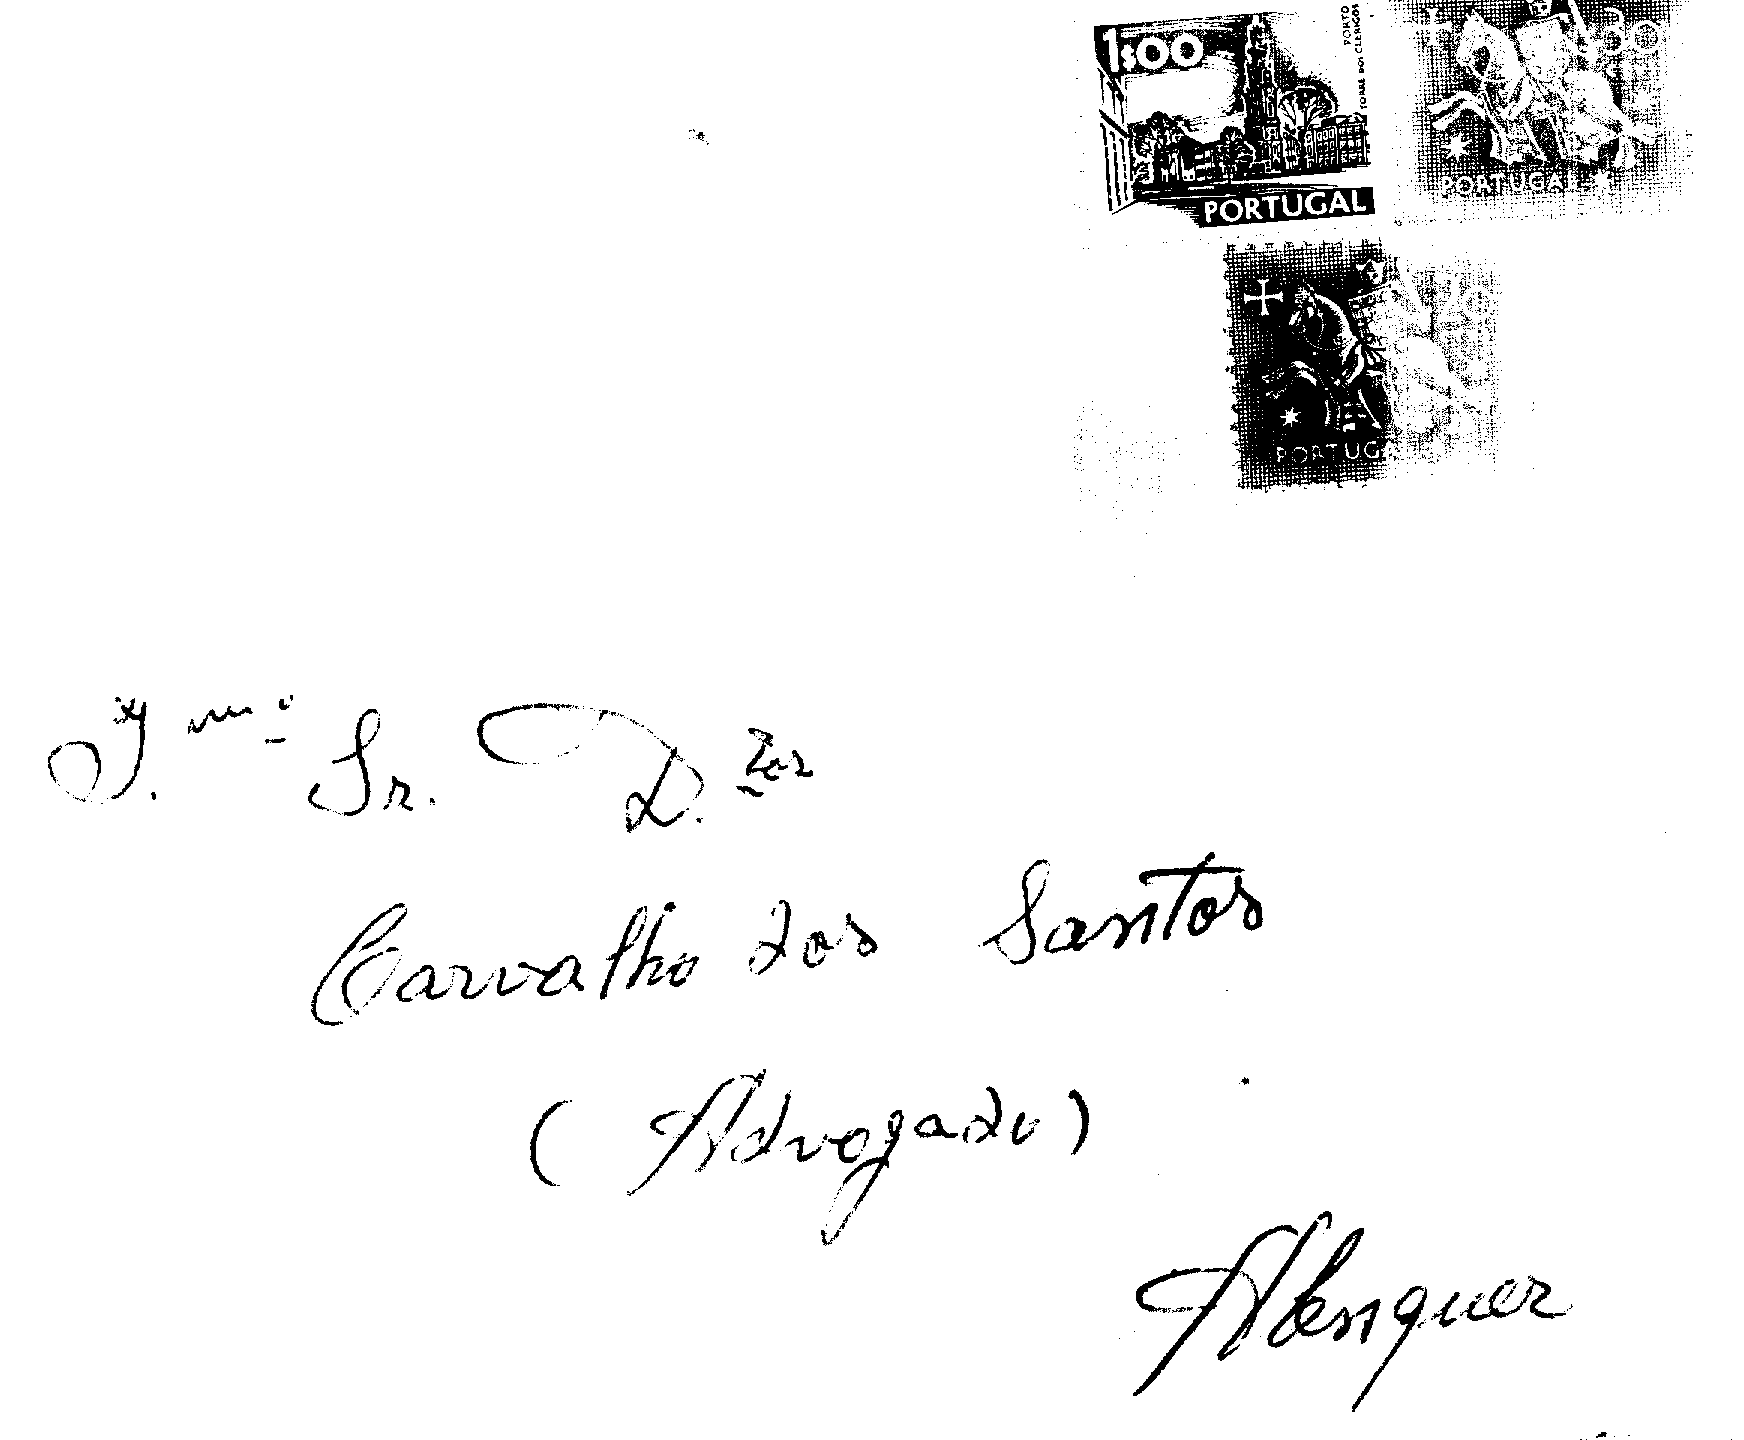 1$00
PORTO
TORRE DOS CLÉRIGOS
PORTUGAL
PORTUGAL
PORTUG
Sr. D.
Carvalho dos Santos
(Advogado)
Alenquer